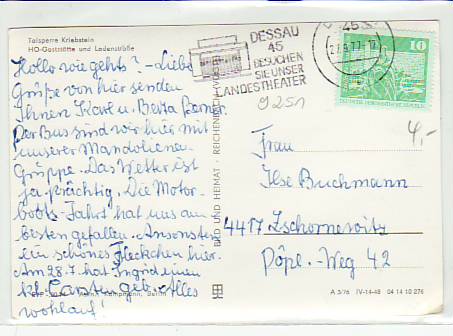 Talsperre Kriebstein
HO-Gaststätte und Ladenstraße
Hallo wie geht's? - Liebe
Grüße von hier senden
Ihnen Karl u. Berta
Per Bus sind wir hier mit
unserer Mandolinen-
Gruppe. Das Wetter ist
ja prächtig. Die Motor-
boots-Fahrt hat uns am
besten gefallen. Ansonsten
ein schönes Fleckchen hier.
Am 28.7. hat Ingrid einen
kl. Carsten geb. Alles
wohlauf!
BILD UND HEIMAT · REICHENBACH
DESSAU
45
BESUCHEN
SIE UNSER
LANDESTHEATER
45
10
9251
4,-
Frau
Ilse Buchmann
4417 Zschornewitz
Pöpl.-Weg 42
Berlin
A 3/76 IV-14-48 04 14 10 276